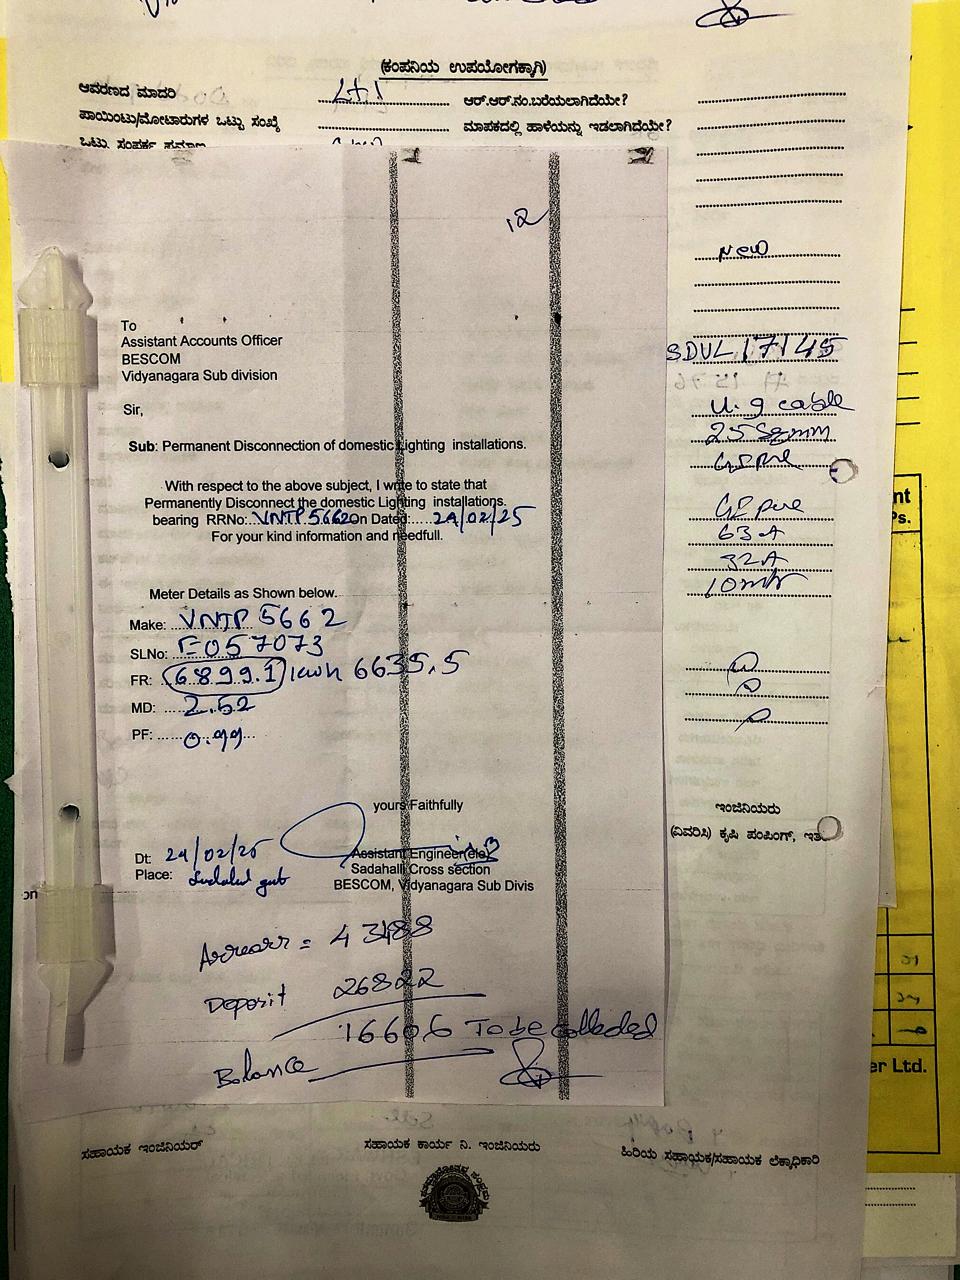 (ಕಂಪನಿಯ ಉಪಯೋಗಕ್ಕಾಗಿ)
ಆವರಣದ ಮಾದರಿ
ಆರ್.ಆರ್.ನಂ.ಬರೆಯಲಾಗಿದೆಯೇ?
ಪಾಯಿಂಟು/ಮೋಟಾರುಗಳ ಒಟ್ಟು ಸಂಖ್ಯೆ
ಮಾಪಕದಲ್ಲಿ ಹಾಳೆಯನ್ನು ಇಡಲಾಗಿದೆಯೇ?
ಒಟ್ಟು ಸಂಪರ್ಕ ಪ್ರಮಾಣ
12
New
SDVL 17145
U.g cable
25 Sqmm
63 A
32A
10mtr
To
Assistant Accounts Officer
BESCOM
Vidyanagara Sub division
Sir,
Sub: Permanent Disconnection of domestic Lighting installations.
With respect to the above subject, I write to state that
Permanently Disconnect the domestic Lighting installations.
bearing RRNo:..VNTP 5662 On Dated:.....24/02/25
For your kind information and needfull.
Meter Details as Shown below.
Make: VNTP 5662
SLNo: E057073
FR: 6899.1 kwh 6635.5
MD: 2.52
PF: 0.99
yours Faithfully
Assistant Engineer(ele)
Dt: 24/02/25
Sadahalli Cross section
Place:
BESCOM, Vidyanagara Sub Divis
Arrears = 43488
Deposit 26822
16606 To be collected
Balance
ಇಂಜಿನಿಯರು
(ವಿವರಿಸಿ) ಕೃಷಿ ಪಂಪಿಂಗ್, ಇತ
er Ltd.
ಸಹಾಯಕ ಇಂಜಿನಿಯರ್
ಸಹಾಯಕ ಕಾರ್ಯ ನಿ. ಇಂಜಿನಿಯರು
ಹಿರಿಯ ಸಹಾಯಕ/ಸಹಾಯಕ ಲೆಕ್ಕಾಧಿಕಾರಿ